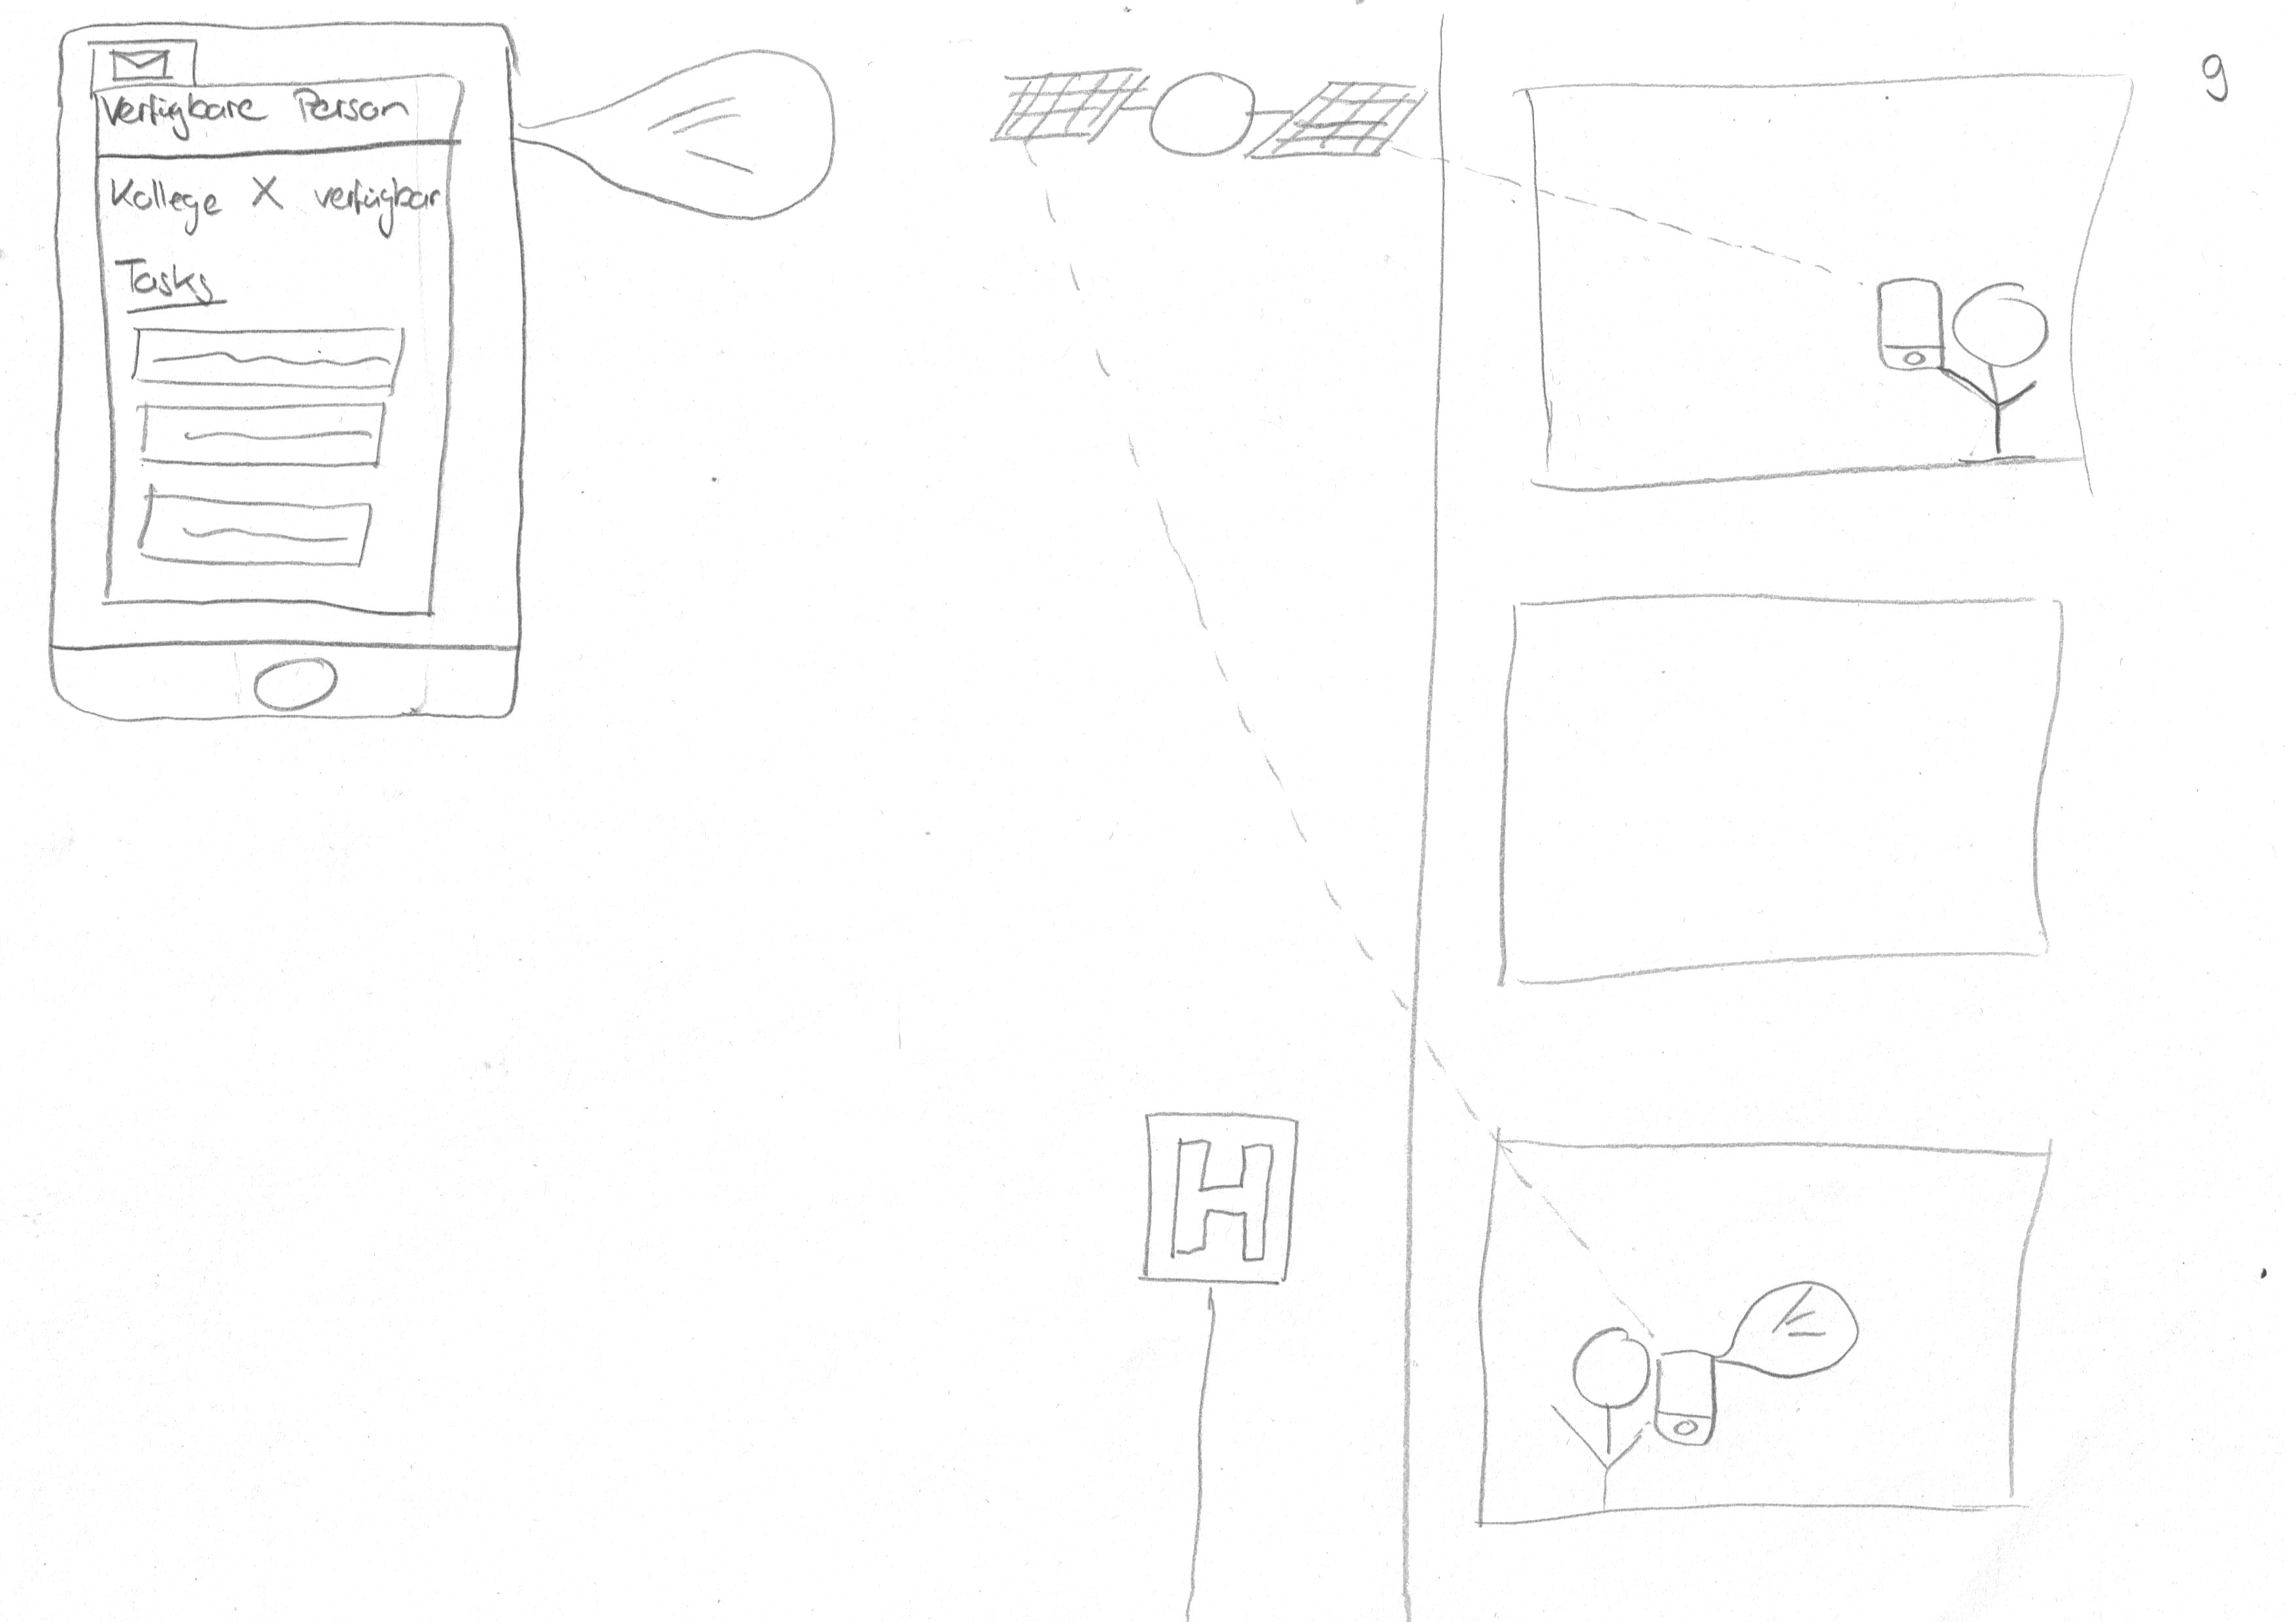 Verfügbare Person
Kollege X verfügbar
Tasks
9
H